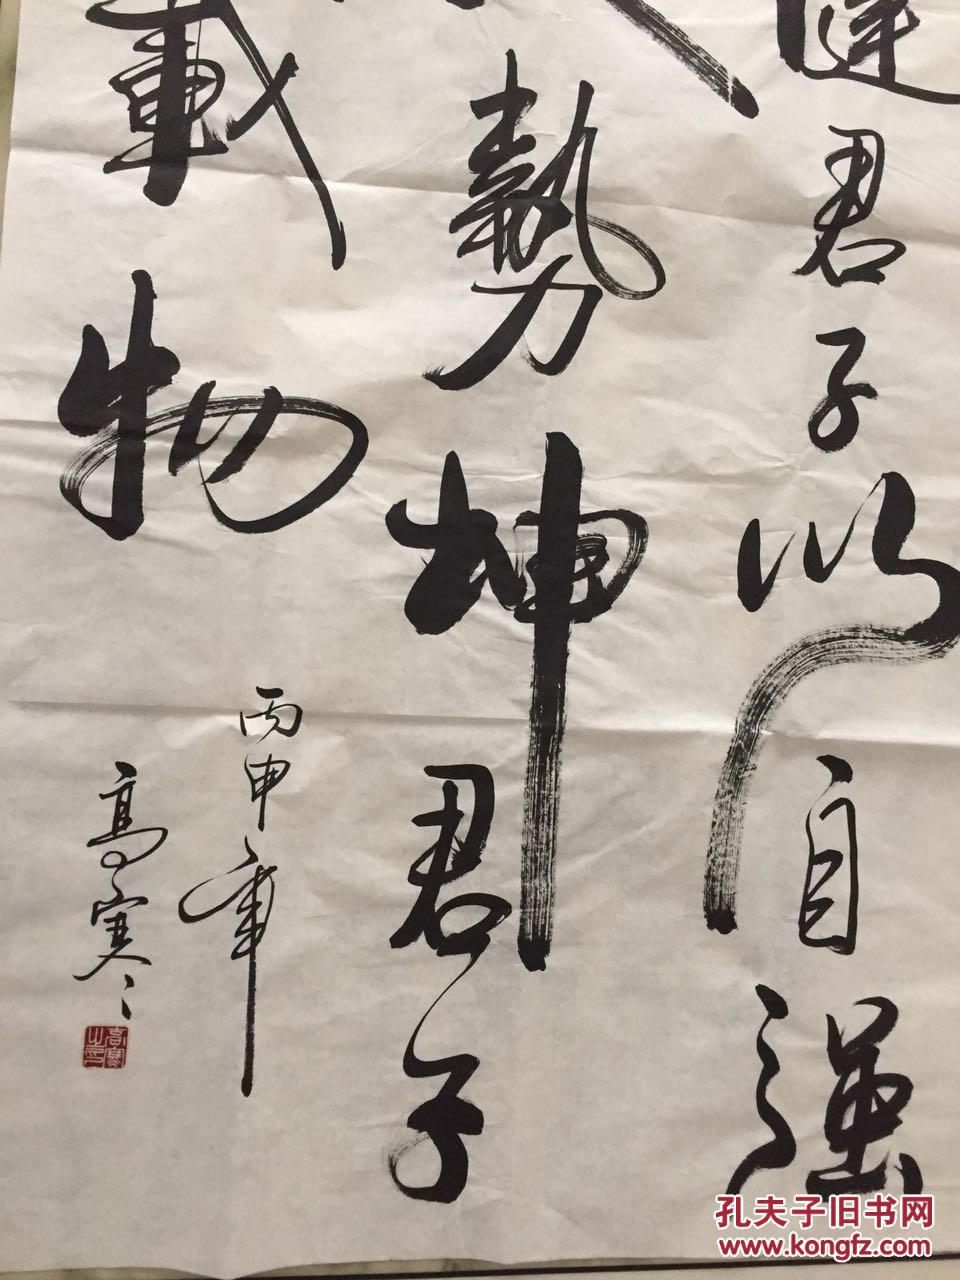 健君子以自强
勢坤君子
載物
丙申年
高寒
高寒之印
孔夫子旧书网
www.kongfz.com